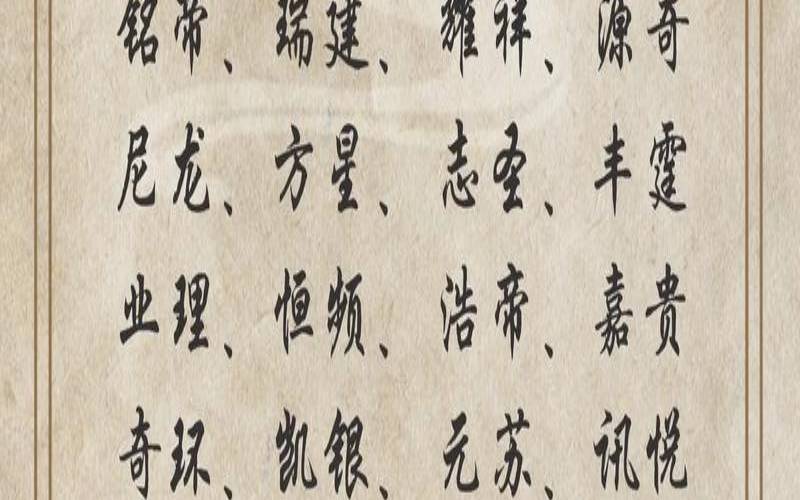 铭帝、瑞建、耀祥、源奇
尼龙、方星、志圣、丰霆
业理、恒频、浩帝、嘉贵
奇环、凯银、元苏、讯悦